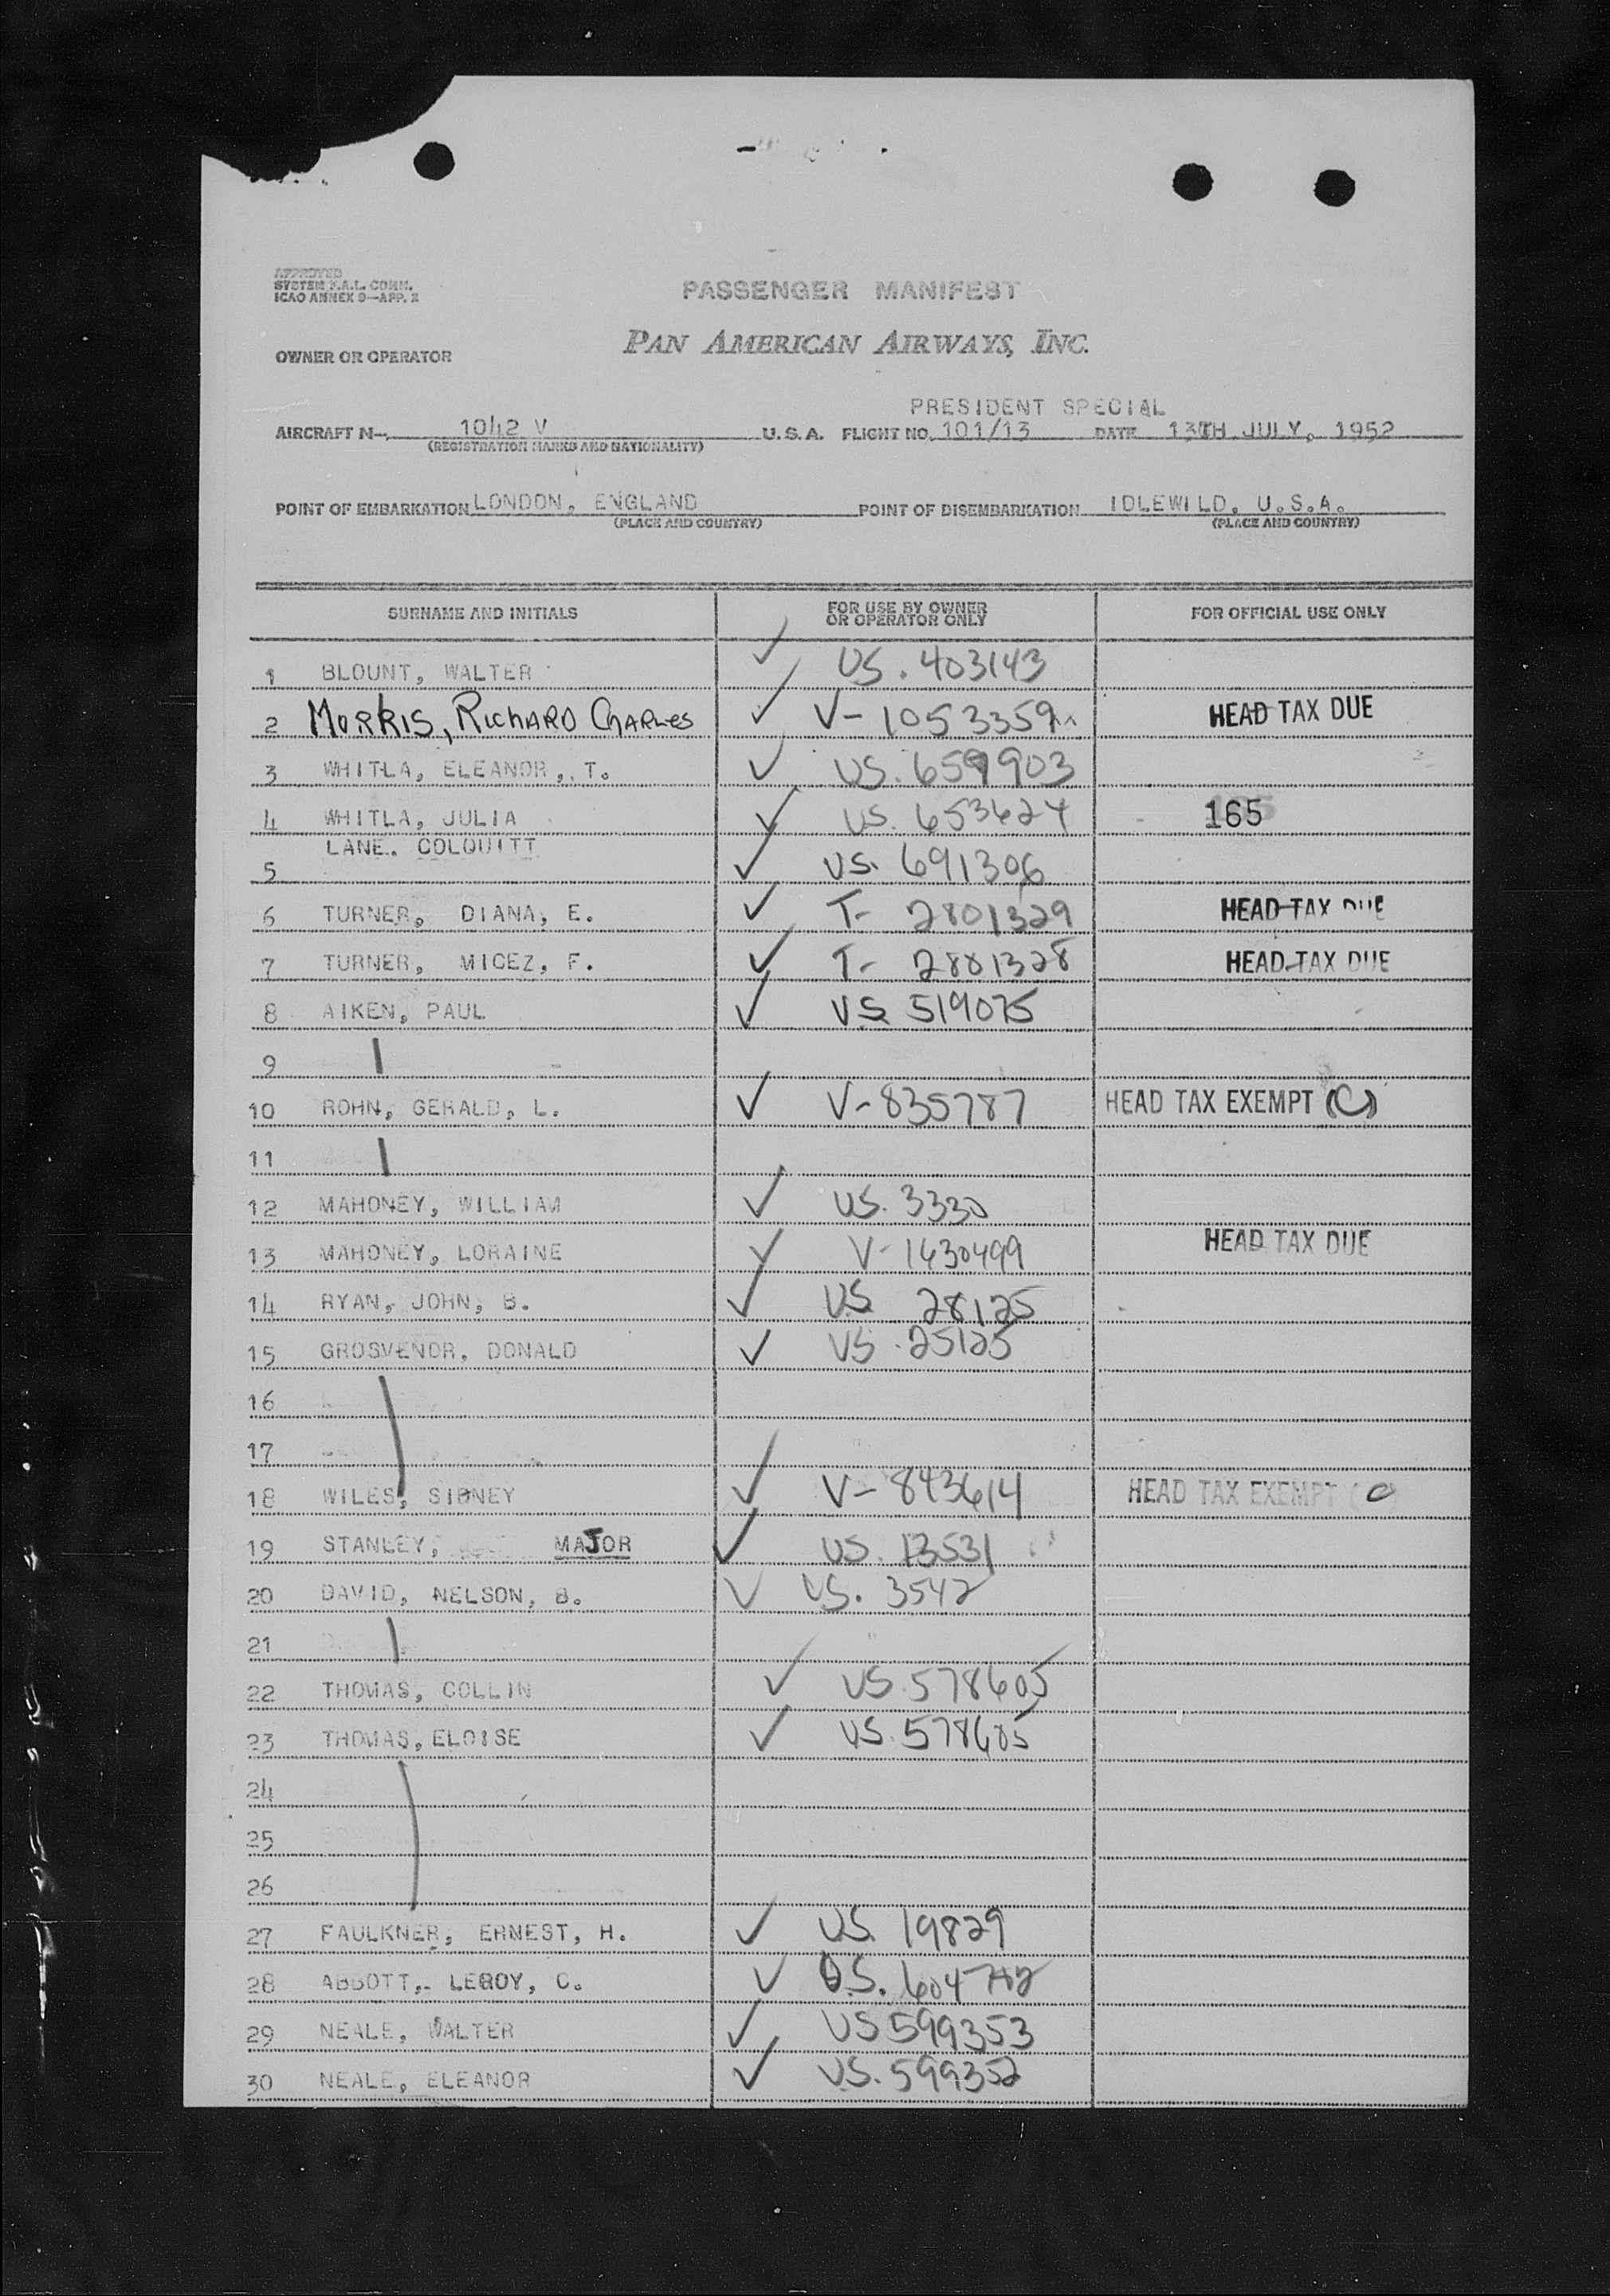 APPROVED
SYSTEM F.A.L. COMM.
ICAO ANNEX 9—APP. 2
PASSENGER MANIFEST
OWNER OR OPERATOR PAN AMERICAN AIRWAYS, INC.
PRESIDENT SPECIAL
AIRCRAFT N— 1042 V U.S.A. FLIGHT NO. 101/13 DATE 13TH JULY, 1952
(REGISTRATION MARKS AND NATIONALITY)
POINT OF EMBARKATION LONDON, ENGLAND POINT OF DISEMBARKATION IDLEWILD, U.S.A.
(PLACE AND COUNTRY) (PLACE AND COUNTRY)
SURNAME AND INITIALS FOR USE BY OWNER OR OPERATOR ONLY FOR OFFICIAL USE ONLY
1 BLOUNT, WALTER ✓ US. 403143
2 MORRIS, RICHARD CHARLES ✓ V-1053359 HEAD TAX DUE
3 WHITLA, ELEANOR, T. ✓ US. 659903
4 WHITLA, JULIA ✓ US. 653624 165
5 LANE. COLQUITT ✓ US. 691306
6 TURNER, DIANA, E. ✓ T- 2801329 HEAD TAX DUE
7 TURNER, MICEZ, F. ✓ T- 2881328 HEAD TAX DUE
8 AIKEN, PAUL ✓ US 519075
9
10 ROHN, GERALD, L. ✓ V-835787 HEAD TAX EXEMPT (C)
11
12 MAHONEY, WILLIAM ✓ US. 3330
13 MAHONEY, LORAINE ✓ V-1430499 HEAD TAX DUE
14 RYAN, JOHN, B. ✓ US 28125
15 GROSVENOR, DONALD ✓ US. 25125
16
17
18 WILES, SIDNEY ✓ V-843614 HEAD TAX EXEMPT (C
19 STANLEY, MAJOR ✓ US. 13531
20 DAVID, NELSON, B. ✓ US. 3542
21
22 THOMAS, COLLIN ✓ US. 578605
23 THOMAS, ELOISE ✓ US. 578605
24
25
26
27 FAULKNER, ERNEST, H. ✓ US. 19829
28 ABBOTT, LEROY, C. ✓ U.S. 604712
29 NEALE, WALTER ✓ US 599353
30 NEALE, ELEANOR ✓ US. 599352